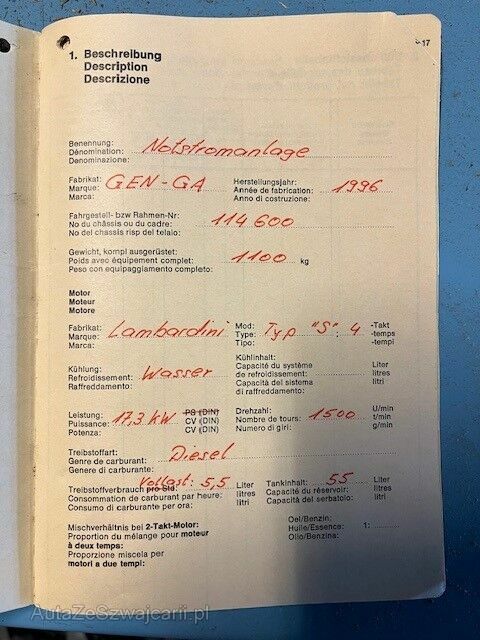 17
1. Beschreibung
Description
Descrizione
Benennung:
Dénomination: Notstromanlage
Denominazione:
Fabrikat: Herstellungsjahr:
Marque: GEN-GA Année de fabrication: 1996
Marca: Anno di costruzione:
Fahrgestell- bzw Rahmen-Nr:
No du châssis ou du cadre: 114 600
No del chassis risp del telaio:
Gewicht, kompl ausgerüstet:
Poids avec équipement complet: 1100 kg
Peso con equipaggiamento completo:
Motor
Moteur
Motore
Fabrikat: Mod: -Takt
Marque: Lambardini Type: Typ "S": 4 -temps
Marca: Tipo: -tempi
Kühlinhalt:
Kühlung: Capacité du système Liter
Refroidissement: Wasser de refroidissement: litres
Raffreddamento: Capacità del sistema litri
di raffreddamento:
Leistung: PS (DIN) Drehzahl: U/min
Puissance: 17,3 kW CV (DIN) Nombre de tours: 1500 t/min
Potenza: CV (DIN) Numero di giri: g/min
Treibstoffart:
Genre de carburant: Diesel
Genere di carburante:
Treibstoffverbrauch pro Std: Vollast: 5,5 Liter Tankinhalt: 55 Liter
Consommation de carburant par heure: litres Capacité du réservoir: litres
Consumo di carburante per ora: litri Capacità del serbatoio: litri
Mischverhältnis bei 2-Takt-Motor: Oel/Benzin:
Proportion du mélange pour moteur Huile/Essence: 1:
à deux temps: Olio/Benzina:
Proporzione miscela per
motori a due tempi:
AutaZeSzwajcarii.pl